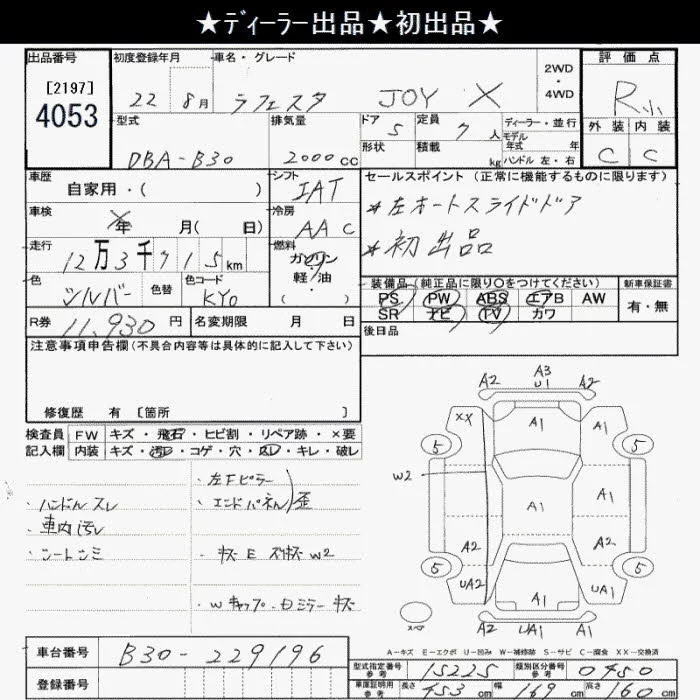 ★ディーラー出品★初出品★
出品番号 初度登録年月 車名・グレード 2WD・4WD 評価点
[2197]
4053
22 8月 ラフェスタ JOY X R小
型式 排気量 ドア 定員 ディーラー・並行 外装 内装
DBA-B30 2000cc 5 7人 モデル年式 年 C C
形状 積載 kg ハンドル 左・右
車歴 シフト セールスポイント (正常に機能するものに限ります)
自家用・( ) IAT *左オートスライドドア
車検 冷房 *初出品
年 月( 日) AAC
走行 燃料
12万3千715km ガソリン
軽油
( )
色 色替 色コード 装備品 (純正品に限り○をつけてください) 新車保証書
シルバー KY0 PS PW ABS エアB AW 有・無
SR ナビ TV カワ
R券 11,930円 名変期限 月 日 後日品
注意事項申告欄 (不具合内容等は具体的に記入して下さい)
修復歴 有 [箇所 ]
検査員 FW キズ・飛石・ヒビ割・リペア跡・×要
記入欄 内装 キズ・汚レ・コゲ・穴・凹・キレ・破レ
・ハンドルスレ
・車内汚レ
・シートシミ
・左Fピラー
・エンドパネル)歪
・キズ E スリキズ W2
・Wキャップ・日ミラーキズ
A2 A3 U1 A2
XX A1 A1
5 5
W2
A1 A1
A2 A2
5 5
UA2 A1 UA1
スペア
A2 UA1 A1 A2
A-キズ E-エクボ U-凹み W-補修跡 S-サビ C-腐食 XX-交換済
車台番号 B30-229196
登録番号
型式指定番号 参考 15225 類別区分番号 参考 0450
車庫証明用 参考 長さ 453cm 幅 169cm 高さ 160cm